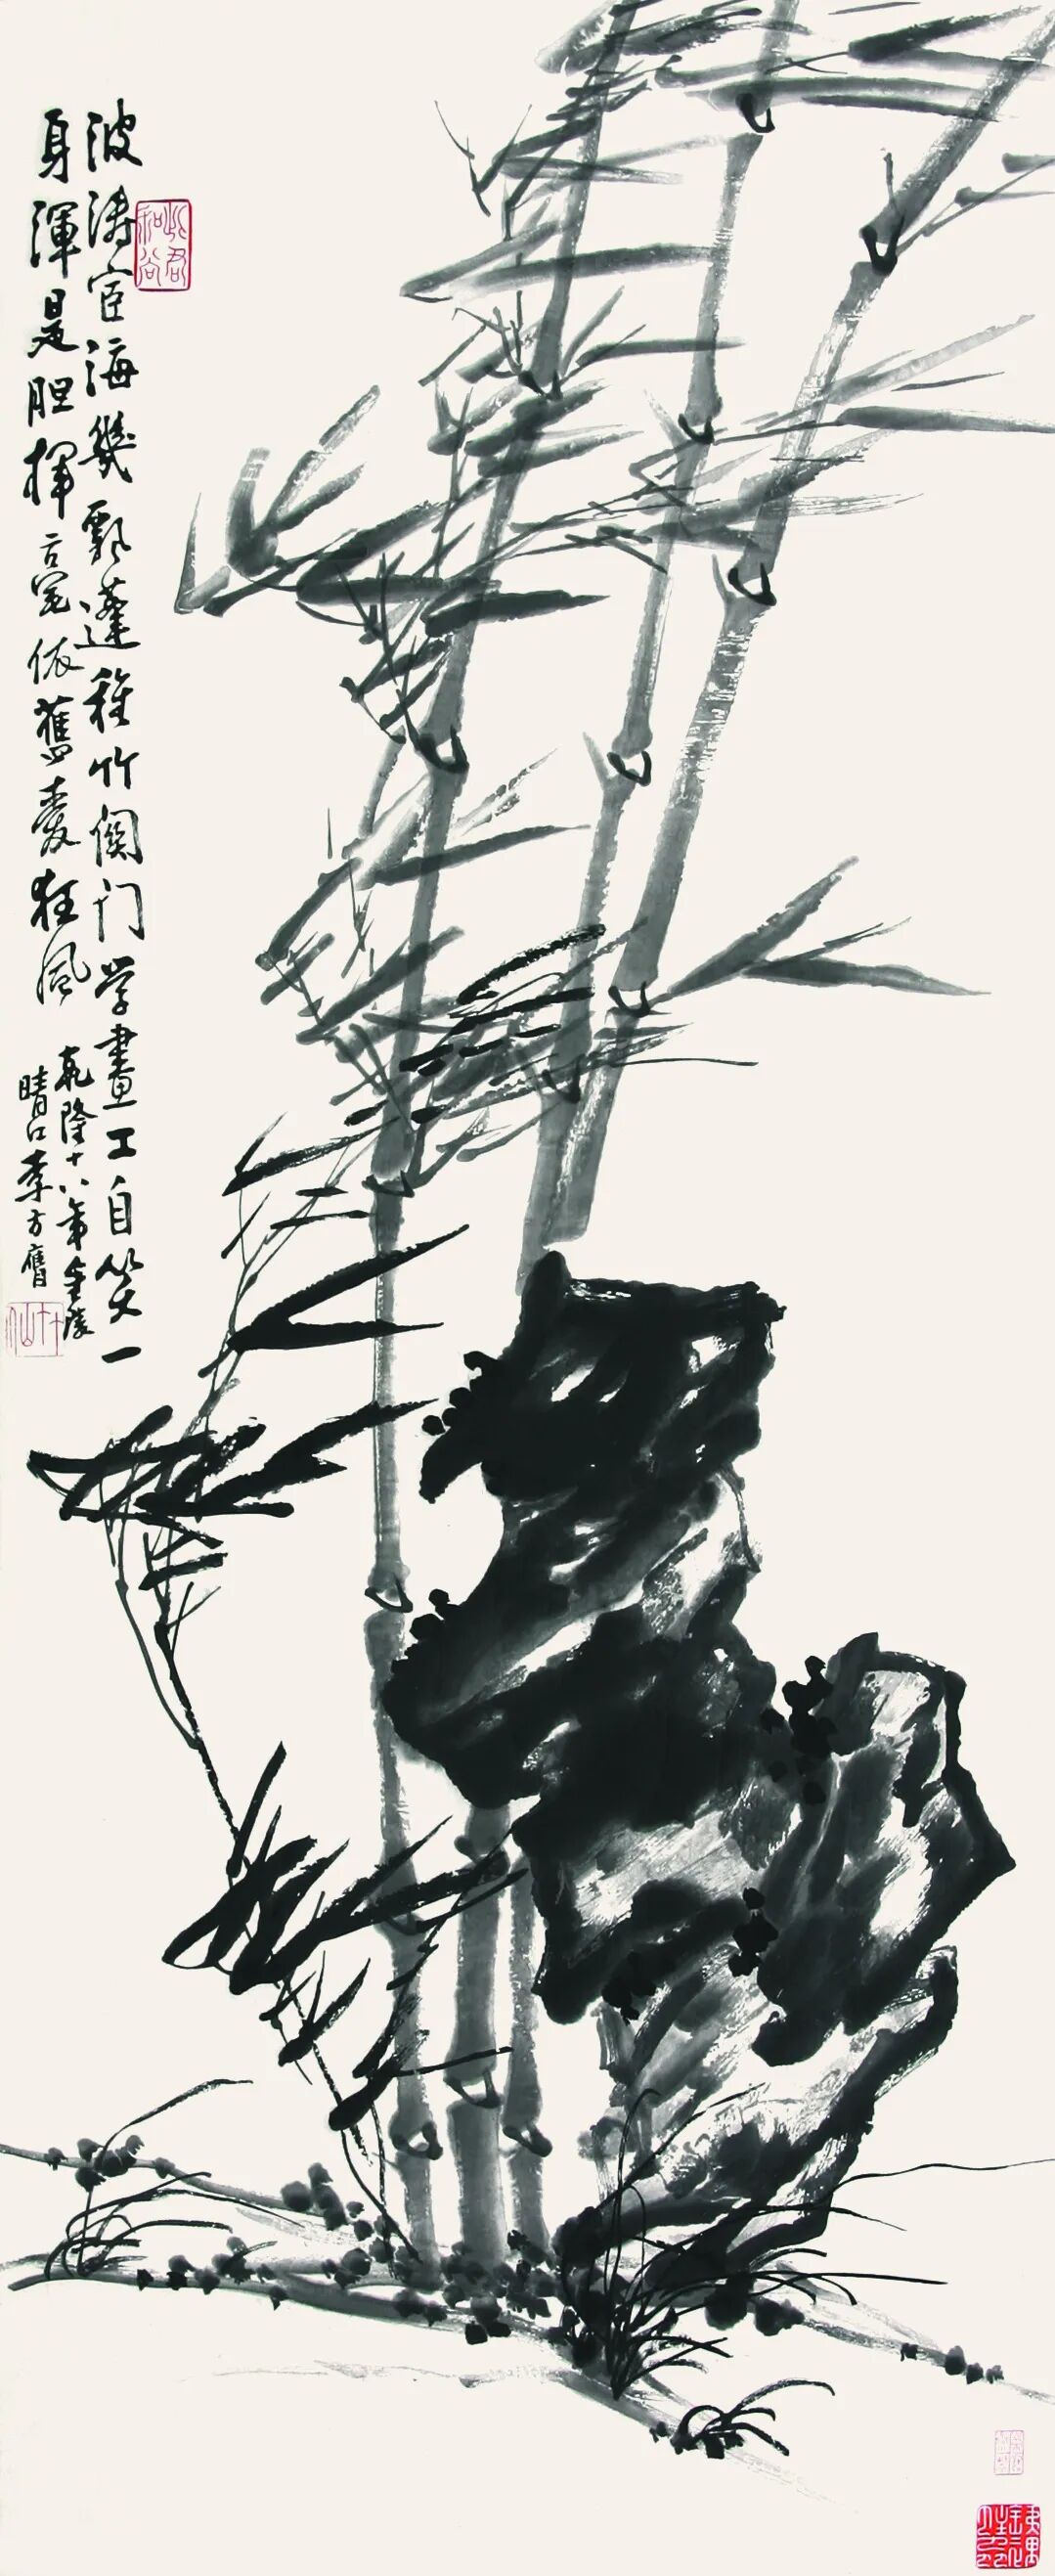 波涛宦海幾飄蓬種竹関门学畫工自笑一
身渾是胆揮毫依舊愛狂風
乾隆十八年金陵
晴江李方膺